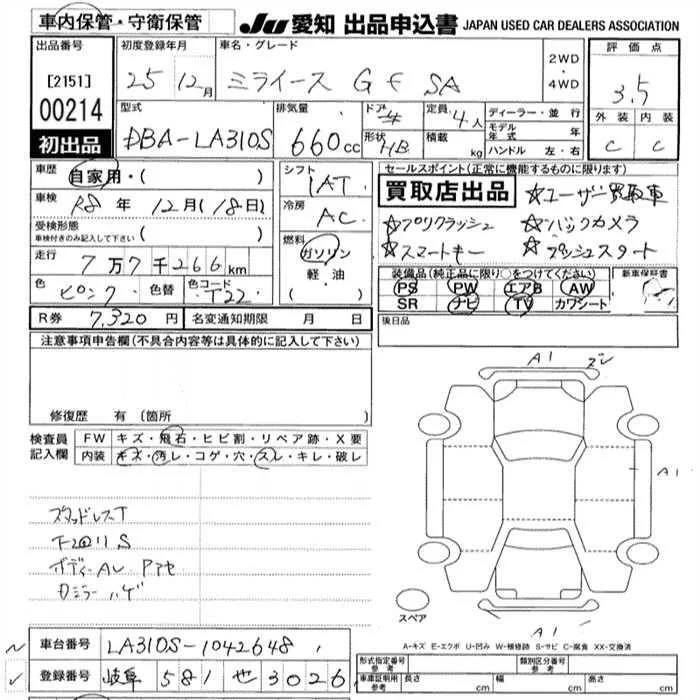 車内保管・守衛保管
JU 愛知 出品申込書 JAPAN USED CAR DEALERS ASSOCIATION
出品番号 [2151] 00214 初出品
初度登録年月 25 12月
車名・グレード ミライース G f SA
2WD・4WD
評価点 3.5
外装 内装
C C
型式 DBA-LA310S
排気量 660cc
ドア 形状 HB
定員 4人 積載 kg
ディーラー・並行
モデル年式 年
ハンドル 左・右
車歴 自家用・( )
車検 R8年 12月(18日)
受検形態 車検付きのみ記入して下さい ( )
走行 7万7千266km
色 ピンク 色替 色コード T22
R券 7,320円 名変通知期限 月 日
シフト IAT
冷房 AC
燃料 ガソリン 軽油 ( )
セールスポイント(正常に機能するものに限ります)
買取店出品 ☆ユーザー買取車
☆プリクラッシュ ☆バックカメラ
☆スマートキー ☆プッシュスタート
装備品(純正品に限り○をつけてください) 新車保証書
PS PW エアB AW
SR ナビ TV カワシート
後日品
注意事項申告欄(不具合内容等は具体的に記入して下さい)
修復歴 有 (箇所
検査員記入欄
FW キズ・飛石・ヒビ割・リペア跡・X要
内装 キズ・汚レ・コゲ・穴・スレ・キレ・破レ
スタッドレスT
ボディーAU
カミラーハゲ
A1
A1
A1
スペア
A-キズ E-エクボ U-凹み W-補修跡 S-サビ C-腐食 XX-交換済
車台番号 LA310S-1042648
登録番号 岐阜 581 せ 3026
形式指定番号 参考 類別区分番号 参考
車庫証明用 参考 長さ cm 幅 cm 高さ cm